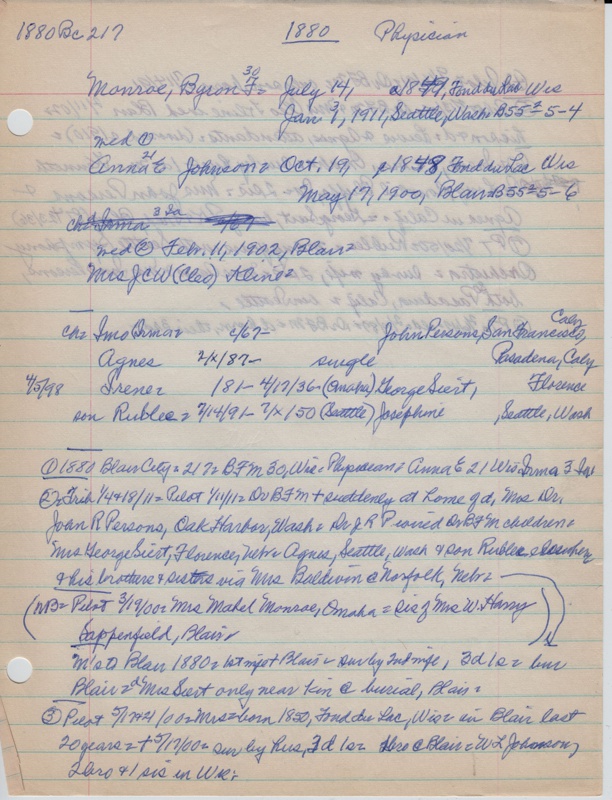 1880 Bc 217 1880 Physician
Monroe, Byron F = 30 July 14, c1849, Fond du Lac Wis
Jan 7, 1911, Seattle, Wash B55=5-4
med ①
Anna E 21 Johnson = Oct. 19, c1848, Fond du Lac Wis
May 17, 1900, Blair B55=5-6
ch= Irma 3 Ia
med ② Feb. 11, 1902, Blair=
Mrs J C W (Cleo) Kline=
ch= Imo Irma= c/67- John Persons, San Francisco, Caly
Agnes 2/x/87- single Pasadena, Caly
4/5/98 Irene= 181- 4/17/36- (Omaha) George Siert, Florence
son Rublee = 7/14/91- 7/x/50 (Seattle) Josephine, Seattle, Wash
① 1880 Blair City = 217 = B F M 30, Wis = Physician = Anna E 21 Wis = Irma 3
② Trib 1/4 + 18/11 = Pilot 1/11/11 = Dr B F M + suddenly at home of d, Mrs Dr.
Joan R Persons, Oak Harbor, Wash = Dr J R P wired Dr B F M children =
Mrs George Siert, Florence, Nebr = Agnes, Seattle, Wash & son Rublee elsewhere
& his brothers & sisters via Mrs Baldwin @ Norfolk, Nebr =
(NB = Pilot 3/19/00 = Mrs Mabel Monroe, Omaha = sis of Mrs W. Harry
Cappenfield, Blair)
M sto Blair 1880 = 1st mjot Blair = sur by 2nd wife, 3d 1s = bur
Blair = d Mrs Siert only near kin @ burial, Blair =
③ Pilot 5/17+21/00 = Mrs = born 1850, Fond du Lac, Wis = in Blair last
20 years = + 5/17/00 = sur by hus, 3d 1s = bro @ Blair = W L Johnson,
2 bro & 1 sis in Wis =